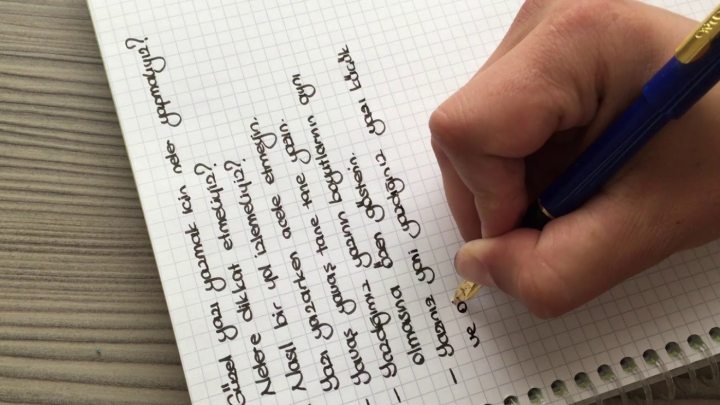 Güzel yazı yazmak için neler yapmalıyız?
Nelere dikkat etmeliyiz?
Nasıl bir yol izlemeliyiz?
Yazı yazarken acele etmeyin.
Yavaş yavaş tane tane yazın.
- Yazdığınız yazının boyutlarının aynı
olmasına özen gösterin.
- Yazınız yani yazdığınız yazı küçük
ve o